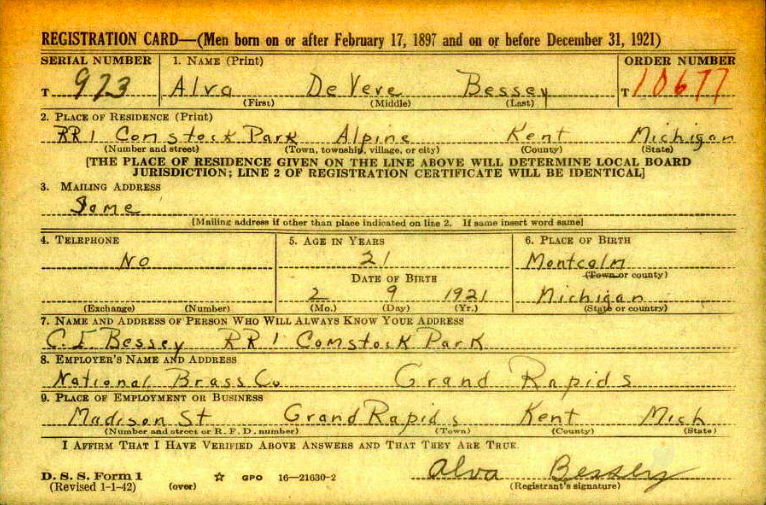 REGISTRATION CARD—(Men born on or after February 17, 1897 and on or before December 31, 1921)
SERIAL NUMBER 1. NAME (Print) ORDER NUMBER
T 973 Alva DeVere Bessey T 10677
(First) (Middle) (Last)
2. PLACE OF RESIDENCE (Print)
RR 1 Comstock Park Alpine Kent Michigan
(Number and street) (Town, township, village, or city) (County) (State)
[THE PLACE OF RESIDENCE GIVEN ON THE LINE ABOVE WILL DETERMINE LOCAL BOARD
JURISDICTION; LINE 2 OF REGISTRATION CERTIFICATE WILL BE IDENTICAL]
3. MAILING ADDRESS
Same
[Mailing address if other than place indicated on line 2. If same insert word same]
4. TELEPHONE 5. AGE IN YEARS 6. PLACE OF BIRTH
No 21 Montcalm
DATE OF BIRTH (Town or county)
2 9 1921 Michigan
(Exchange) (Number) (Mo.) (Day) (Yr.) (State or country)
7. NAME AND ADDRESS OF PERSON WHO WILL ALWAYS KNOW YOUR ADDRESS
C.E. Bessey RR 1 Comstock Park
8. EMPLOYER'S NAME AND ADDRESS
National Brass Co Grand Rapids
9. PLACE OF EMPLOYMENT OR BUSINESS
Madison St Grand Rapids Kent Mich
(Number and street or R. F. D. number) (Town) (County) (State)
I AFFIRM THAT I HAVE VERIFIED ABOVE ANSWERS AND THAT THEY ARE TRUE
Alva Bessey
D. S. S. Form 1
(Revised 1-1-42) (over) ☆ GPO 16—21630-2 (Registrant's signature)